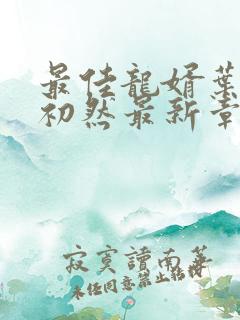 最佳龍婿葉
初然最新章
寂寞讀南華
未任同意禁止轉授